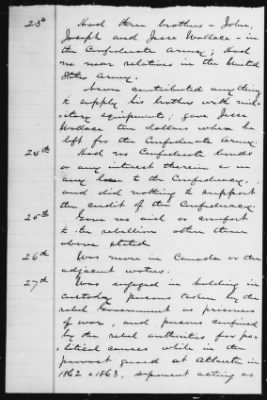 23d Had three brothers - John,
Joseph and Jesse Wallace - in
the Confederate Army; Had
no near relatives in the United
States Army.
Never contributed anything
to supply his brothers with mil-
itary equipments; gave Jesse
Wallace ten dollars when he
left for the Confederate Army.
24th Had no Confederate bonds
or any interest therein in
any loan to the Confederacy
and did nothing to support
the credit of the Confederacy.
25th Gave no aid or comfort
to the rebellion other than
above stated
26th Was never in Canada or the
adjacent waters.
27th Was engaged in holding in
custody persons taken by the
rebel government as prisoners
of war, and persons confined
by the rebel authorities for po-
litical causes while in the
provost guard at Atlanta in
1862 & 1863, deponent acting as